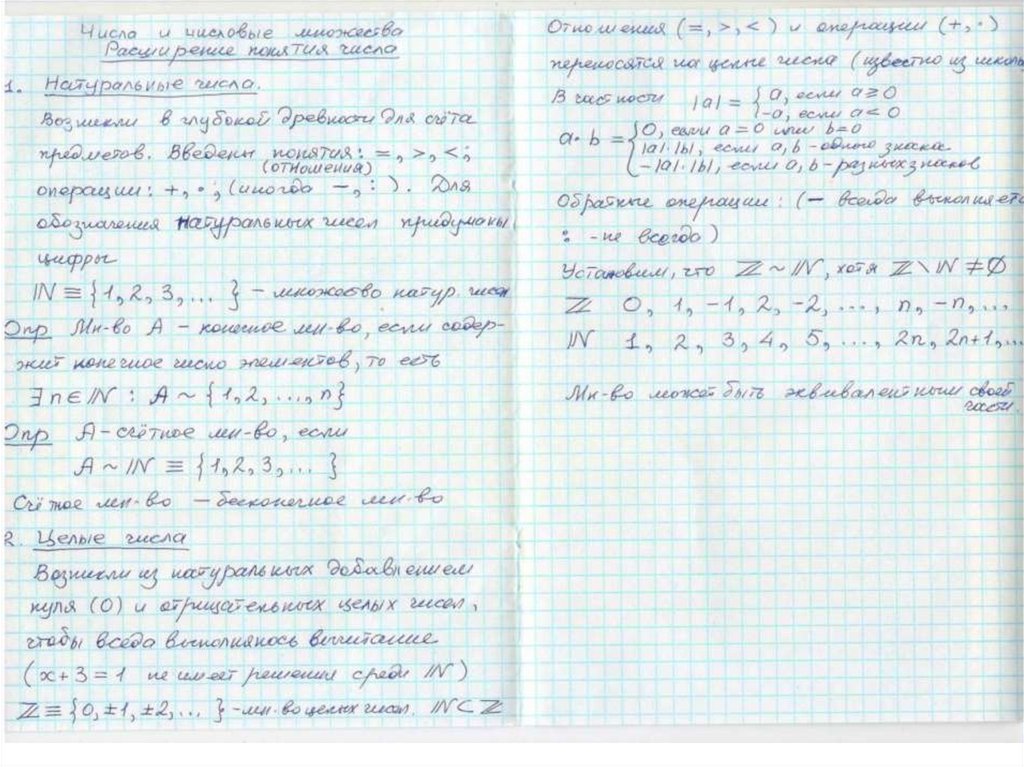 Числа и числовые множества
Расширение понятия числа
1. Натуральные числа.
Возникли в глубокой древности для счёта
предметов. Введены понятия: =, >, <;
(отношения)
операции: +, ·; (иногда −, :). Для
обозначения натуральных чисел придуманы
цифры
ℕ ≡ {1, 2, 3, ... } – множество натур. чисел
Опр Мн-во А – конечное мн-во, если содер-
жит конечное число элементов, то есть
∃ n ∈ ℕ : A ~ {1, 2, ..., n}
Опр А – счётное мн-во, если
A ~ ℕ ≡ {1, 2, 3, ... }
Счётное мн-во – бесконечное мн-во
2. Целые числа
Возникли из натуральных добавлением
нуля (0) и отрицательных целых чисел,
чтобы всегда выполнялось вычитание
(x + 3 = 1 не имеет решения среди ℕ)
ℤ ≡ {0, ±1, ±2, ... } – мн-во целых чисел. ℕ ⊂ ℤ
Отношения (=, >, <) и операции (+, ·)
переносятся на целые числа (известно из школы
В частности |a| = { a, если a ≥ 0
-a, если a < 0
a · b = { 0, если a = 0 или b = 0
|a|·|b|, если a, b – одного знака
−|a|·|b|, если a, b – разных знаков
Обратные операции: (− всегда выполняется
: – не всегда)
Установим, что ℤ ~ ℕ, хотя ℤ \ ℕ ≠ ∅
ℤ 0, 1, −1, 2, −2, ..., n, −n, ...
ℕ 1, 2, 3, 4, 5, ..., 2n, 2n+1, ...
Мн-во может быть эквивалентным своей
части.